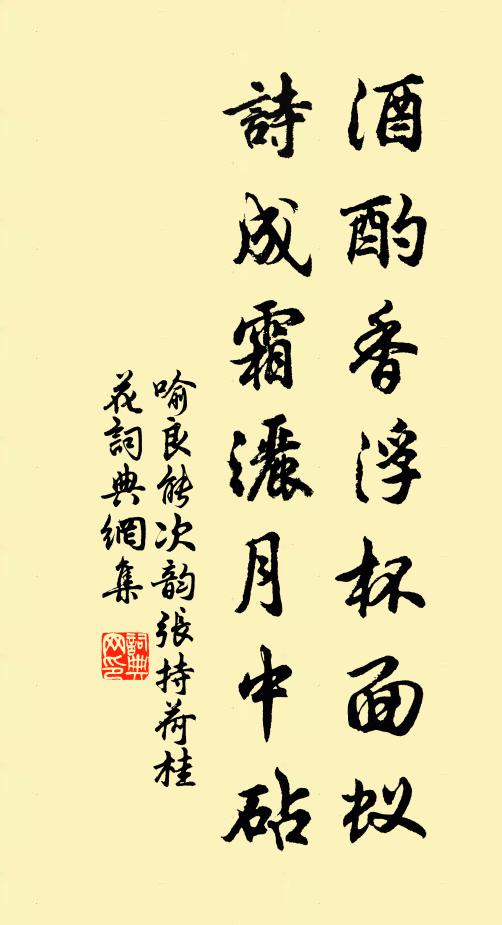 酒酌香浮杯面蚁
詩成霜灑月中砧
喻良能次韵張持荷桂
花詞典網集
詞典
网印